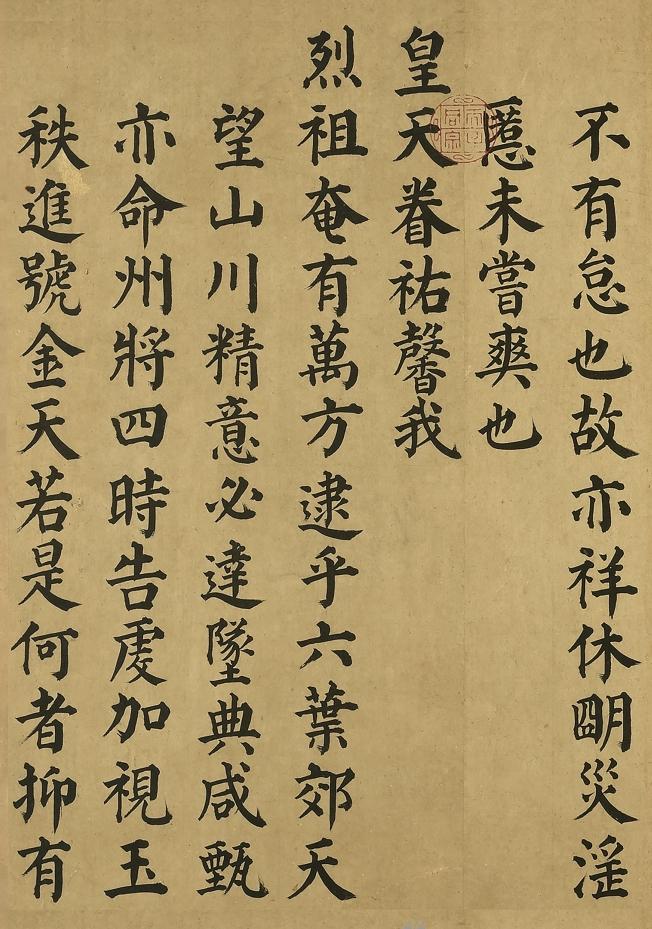 不有怠也故亦祥休明災淫
慝未嘗爽也
皇天眷祐馨我
烈祖奄有萬方逮乎六葉郊天
望山川精意必達墜典咸甄
亦命州將四時告虔加視玉
秩進號金天若是何者抑有